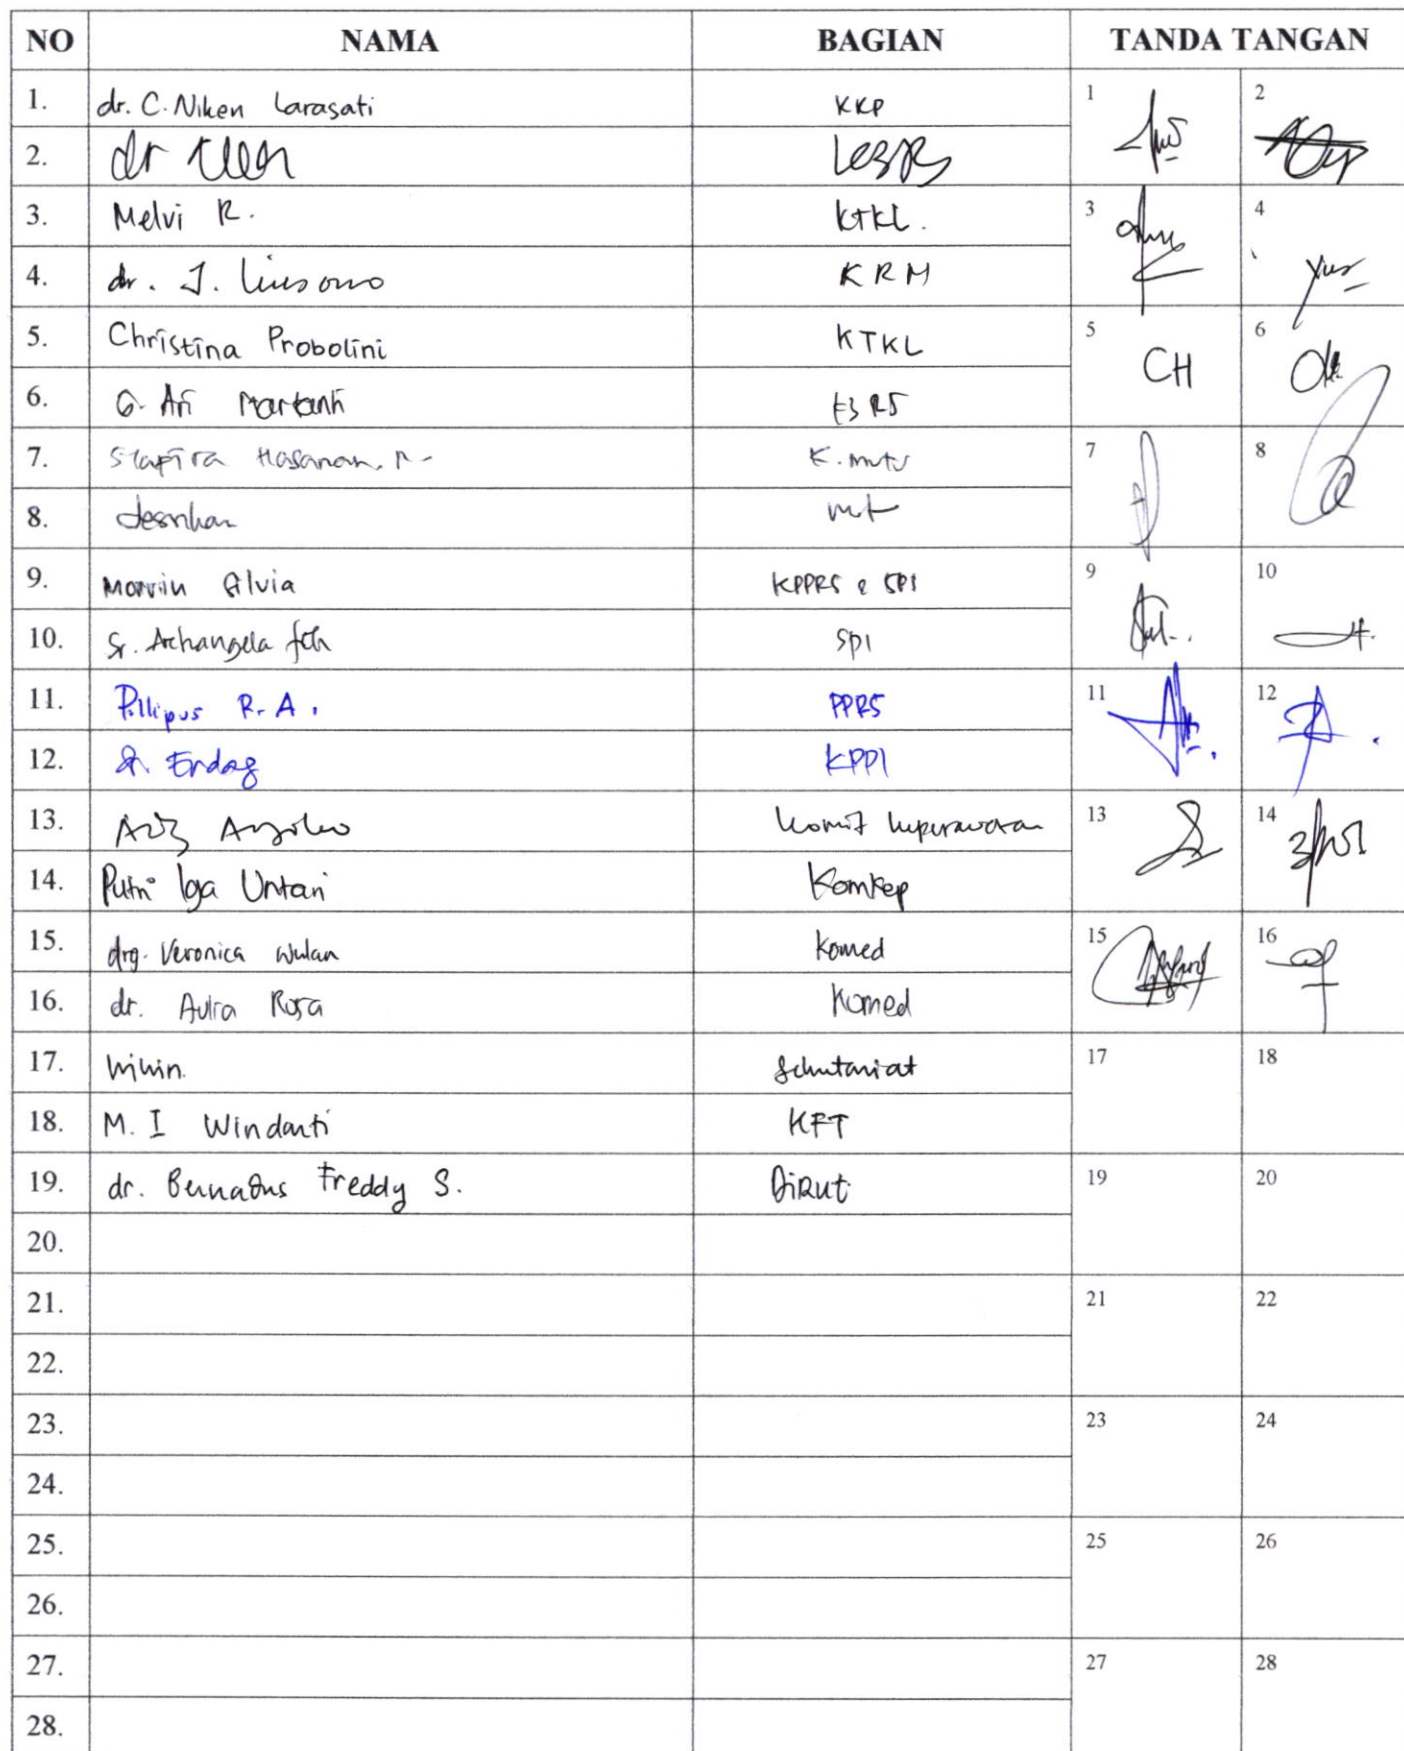 NO NAMA BAGIAN TANDA TANGAN
1. dr. C. Niken Larasati KKP 1 2
2. dr
3. Melvi R. KTKL. 3 4
4. dr. J. KRM
5. Christina Probolini KTKL 5 6 CH
6. G. Ari Martanti
7. K. mutu 7 8
8.
9. Silvia KPPRS & SPI 9 10
10. Sr. Archangela fch SPI
11. Pillipus R. A. PPRS 11 12
12. Sr. Endang KPPI
13. Komit keperawatan 13 14
14. Putri Iga Untari Komkep
15. drg. Veronica Wulan Komed 15 16
16. dr. Aulia Rosa Komed
17. Wiwin. Sekretariat 17 18
18. M. I Windarti KFT
19. dr. Bernadus Freddy S. Dirut 19 20
20.
21. 21 22
22.
23. 23 24
24.
25. 25 26
26.
27. 27 28
28.